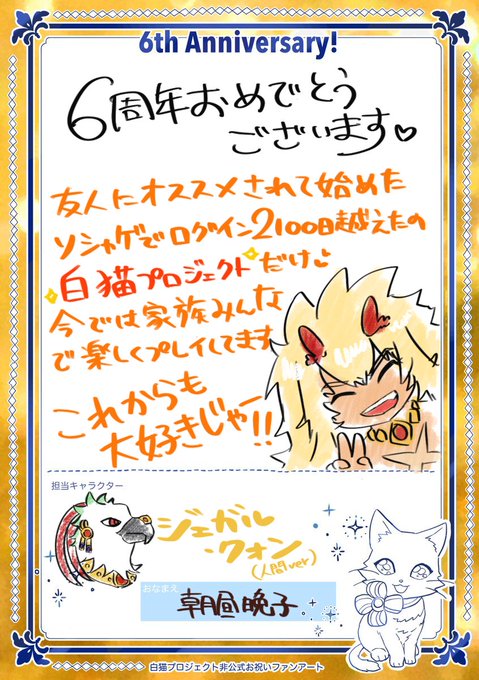 6th Anniversary!
6周年おめでとう
ございます♡
友人にオススメされて始めた
ソシャゲでログイン2100日越えたの
白猫プロジェクトだけ♡
今では家族みんな
で楽しくプレイしてます
これからも
大好きじゃー!!
担当キャラクター
ジェガル
・クォン
(人間ver)
おなまえ
朝昼晩子
白猫プロジェクト非公式お祝いファンアート